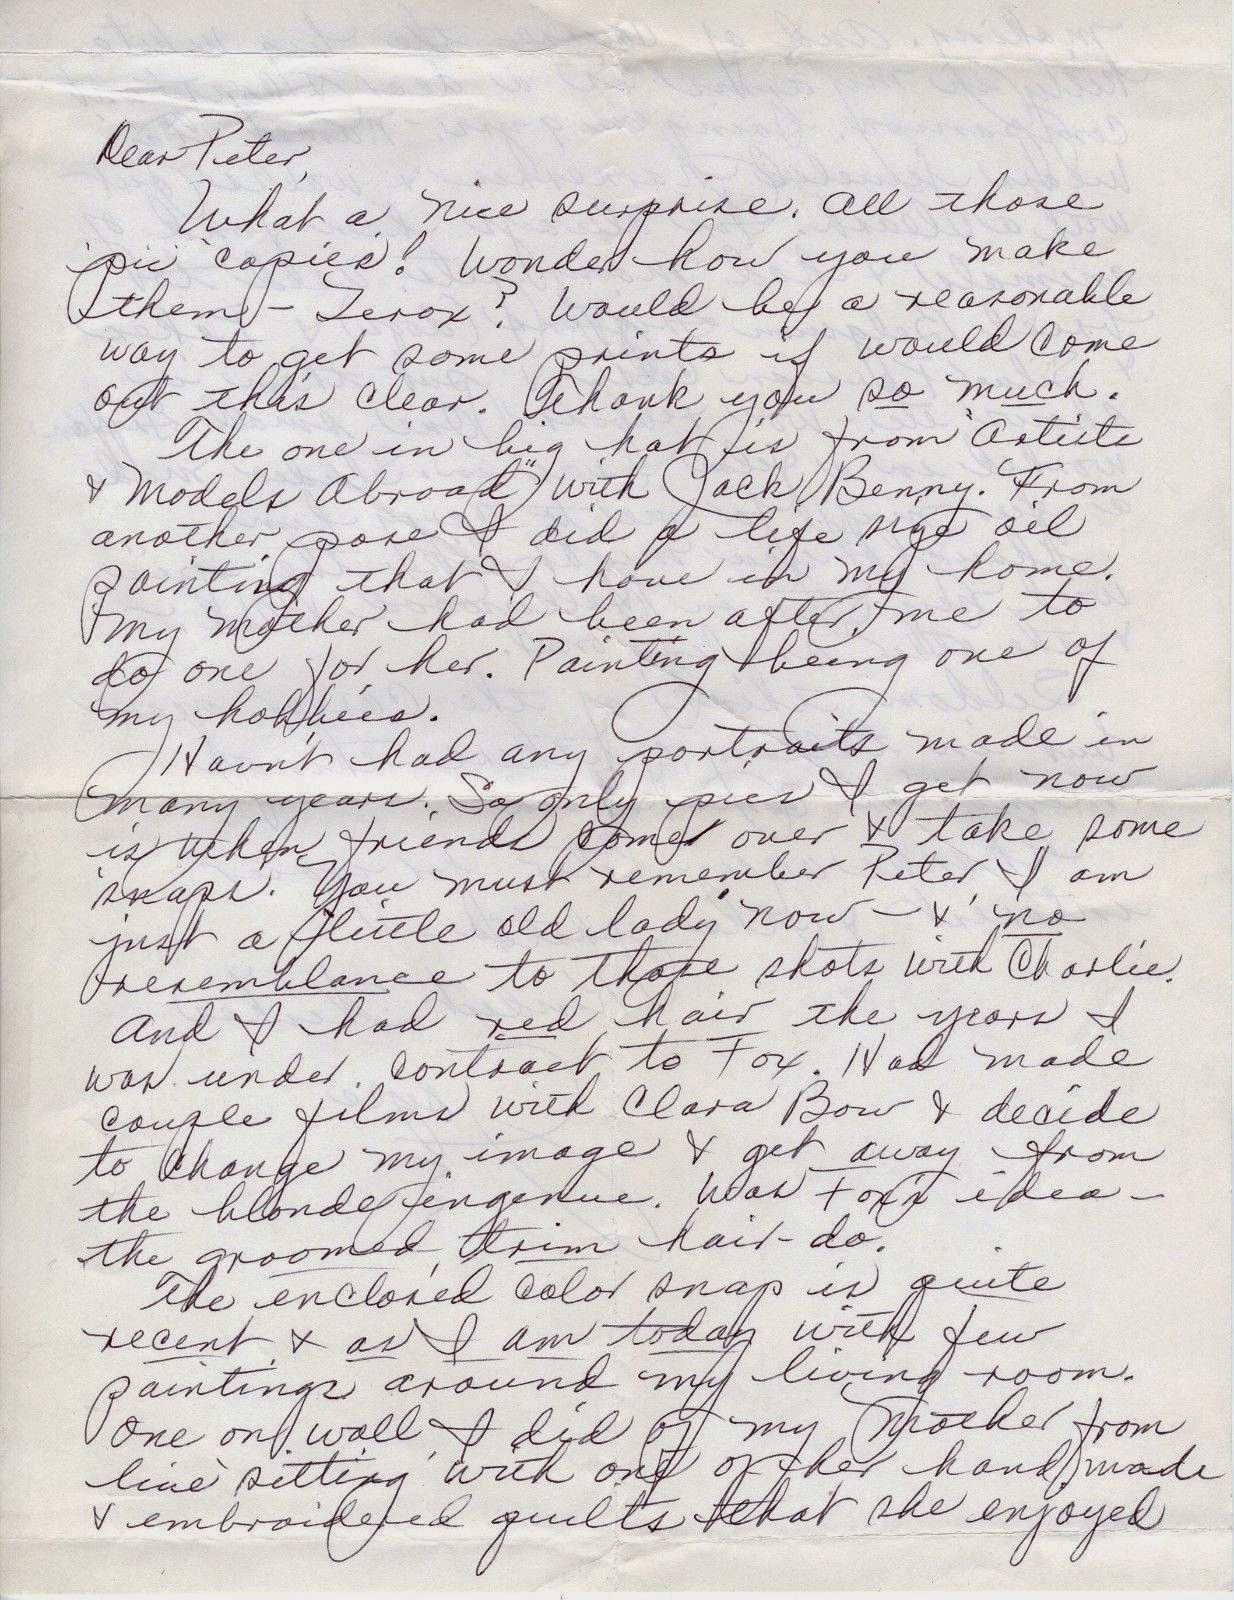 Dear Peter,
What a nice surprise. All those
'pic' copies! Wonder how you make
them - Zerox? Would be a reasonable
way to get some prints if would come
out this clear. Thank you so much.
The one in big hat is from "Artists
& Models Abroad" with Jack Benny. From
another pose I did a life size oil
painting that I have in my home.
My mother had been after me to
do one for her. Painting being one of
my hobbies.
Havn't had any portraits made in
many years. So only pics I get now
is when friends come over & take some
snaps. You must remember Peter, I am
just a "little old lady" now - & no
resemblance to those shots with Charlie.
And I had red hair the years I
was under contract to Fox. Had made
couple films with Clara Bow & decide
to change my image & get away from
the blonde ingenue. Was Fox's idea -
the groomed, trim hair-do.
The enclosed color snap is quite
recent & as I am today with few
paintings around my living room.
One on wall I did of my Mother from
live 'sitting' with one of her hand made
& embroidered quilts that she enjoyed